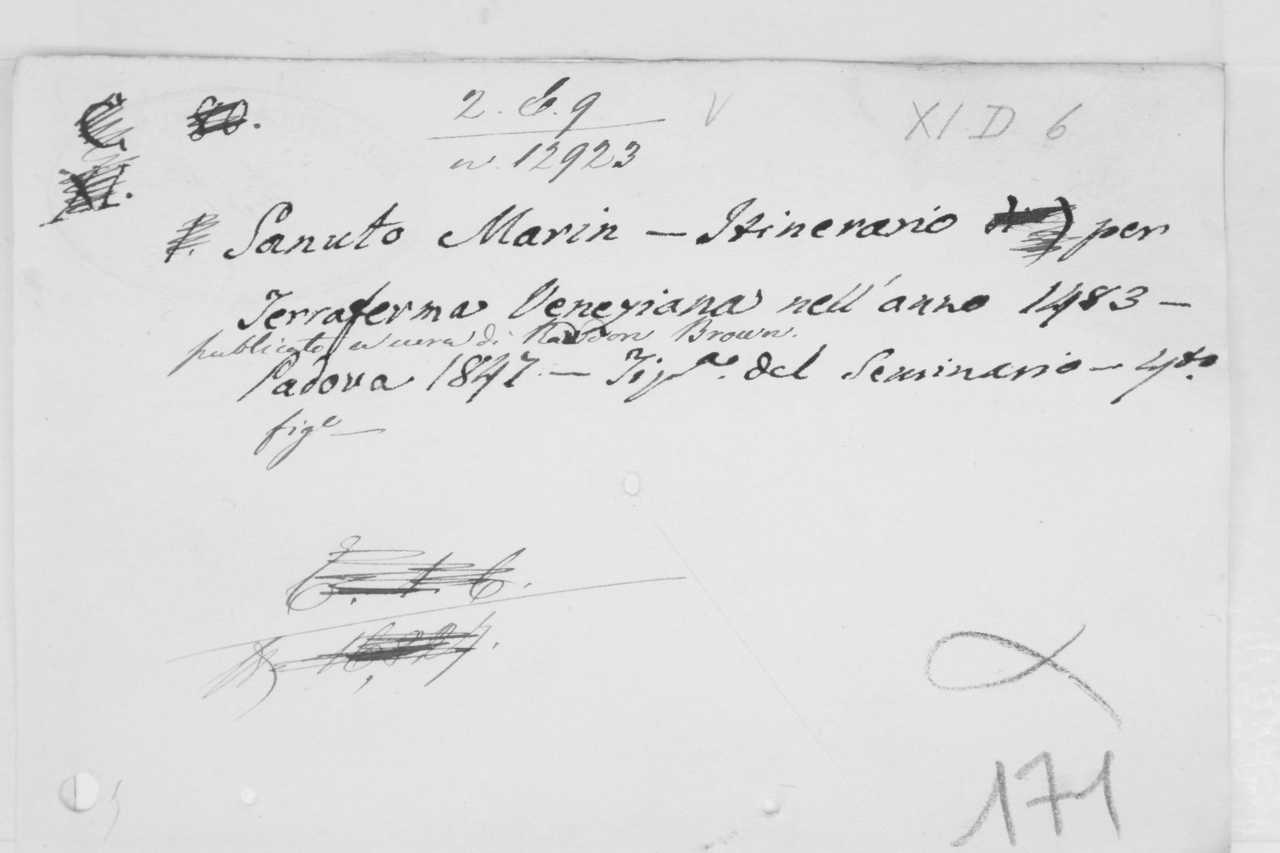 2. C. 9 V XI D 6
n. 12923
XI.
Sanuto Marin — Itinerario per
Terraferma Veneziana nell'anno 1483 —
publicato a cura di Rawdon Brown.
Padova 1847 — Tip.ª del Seminario — 4to.
fige —
171